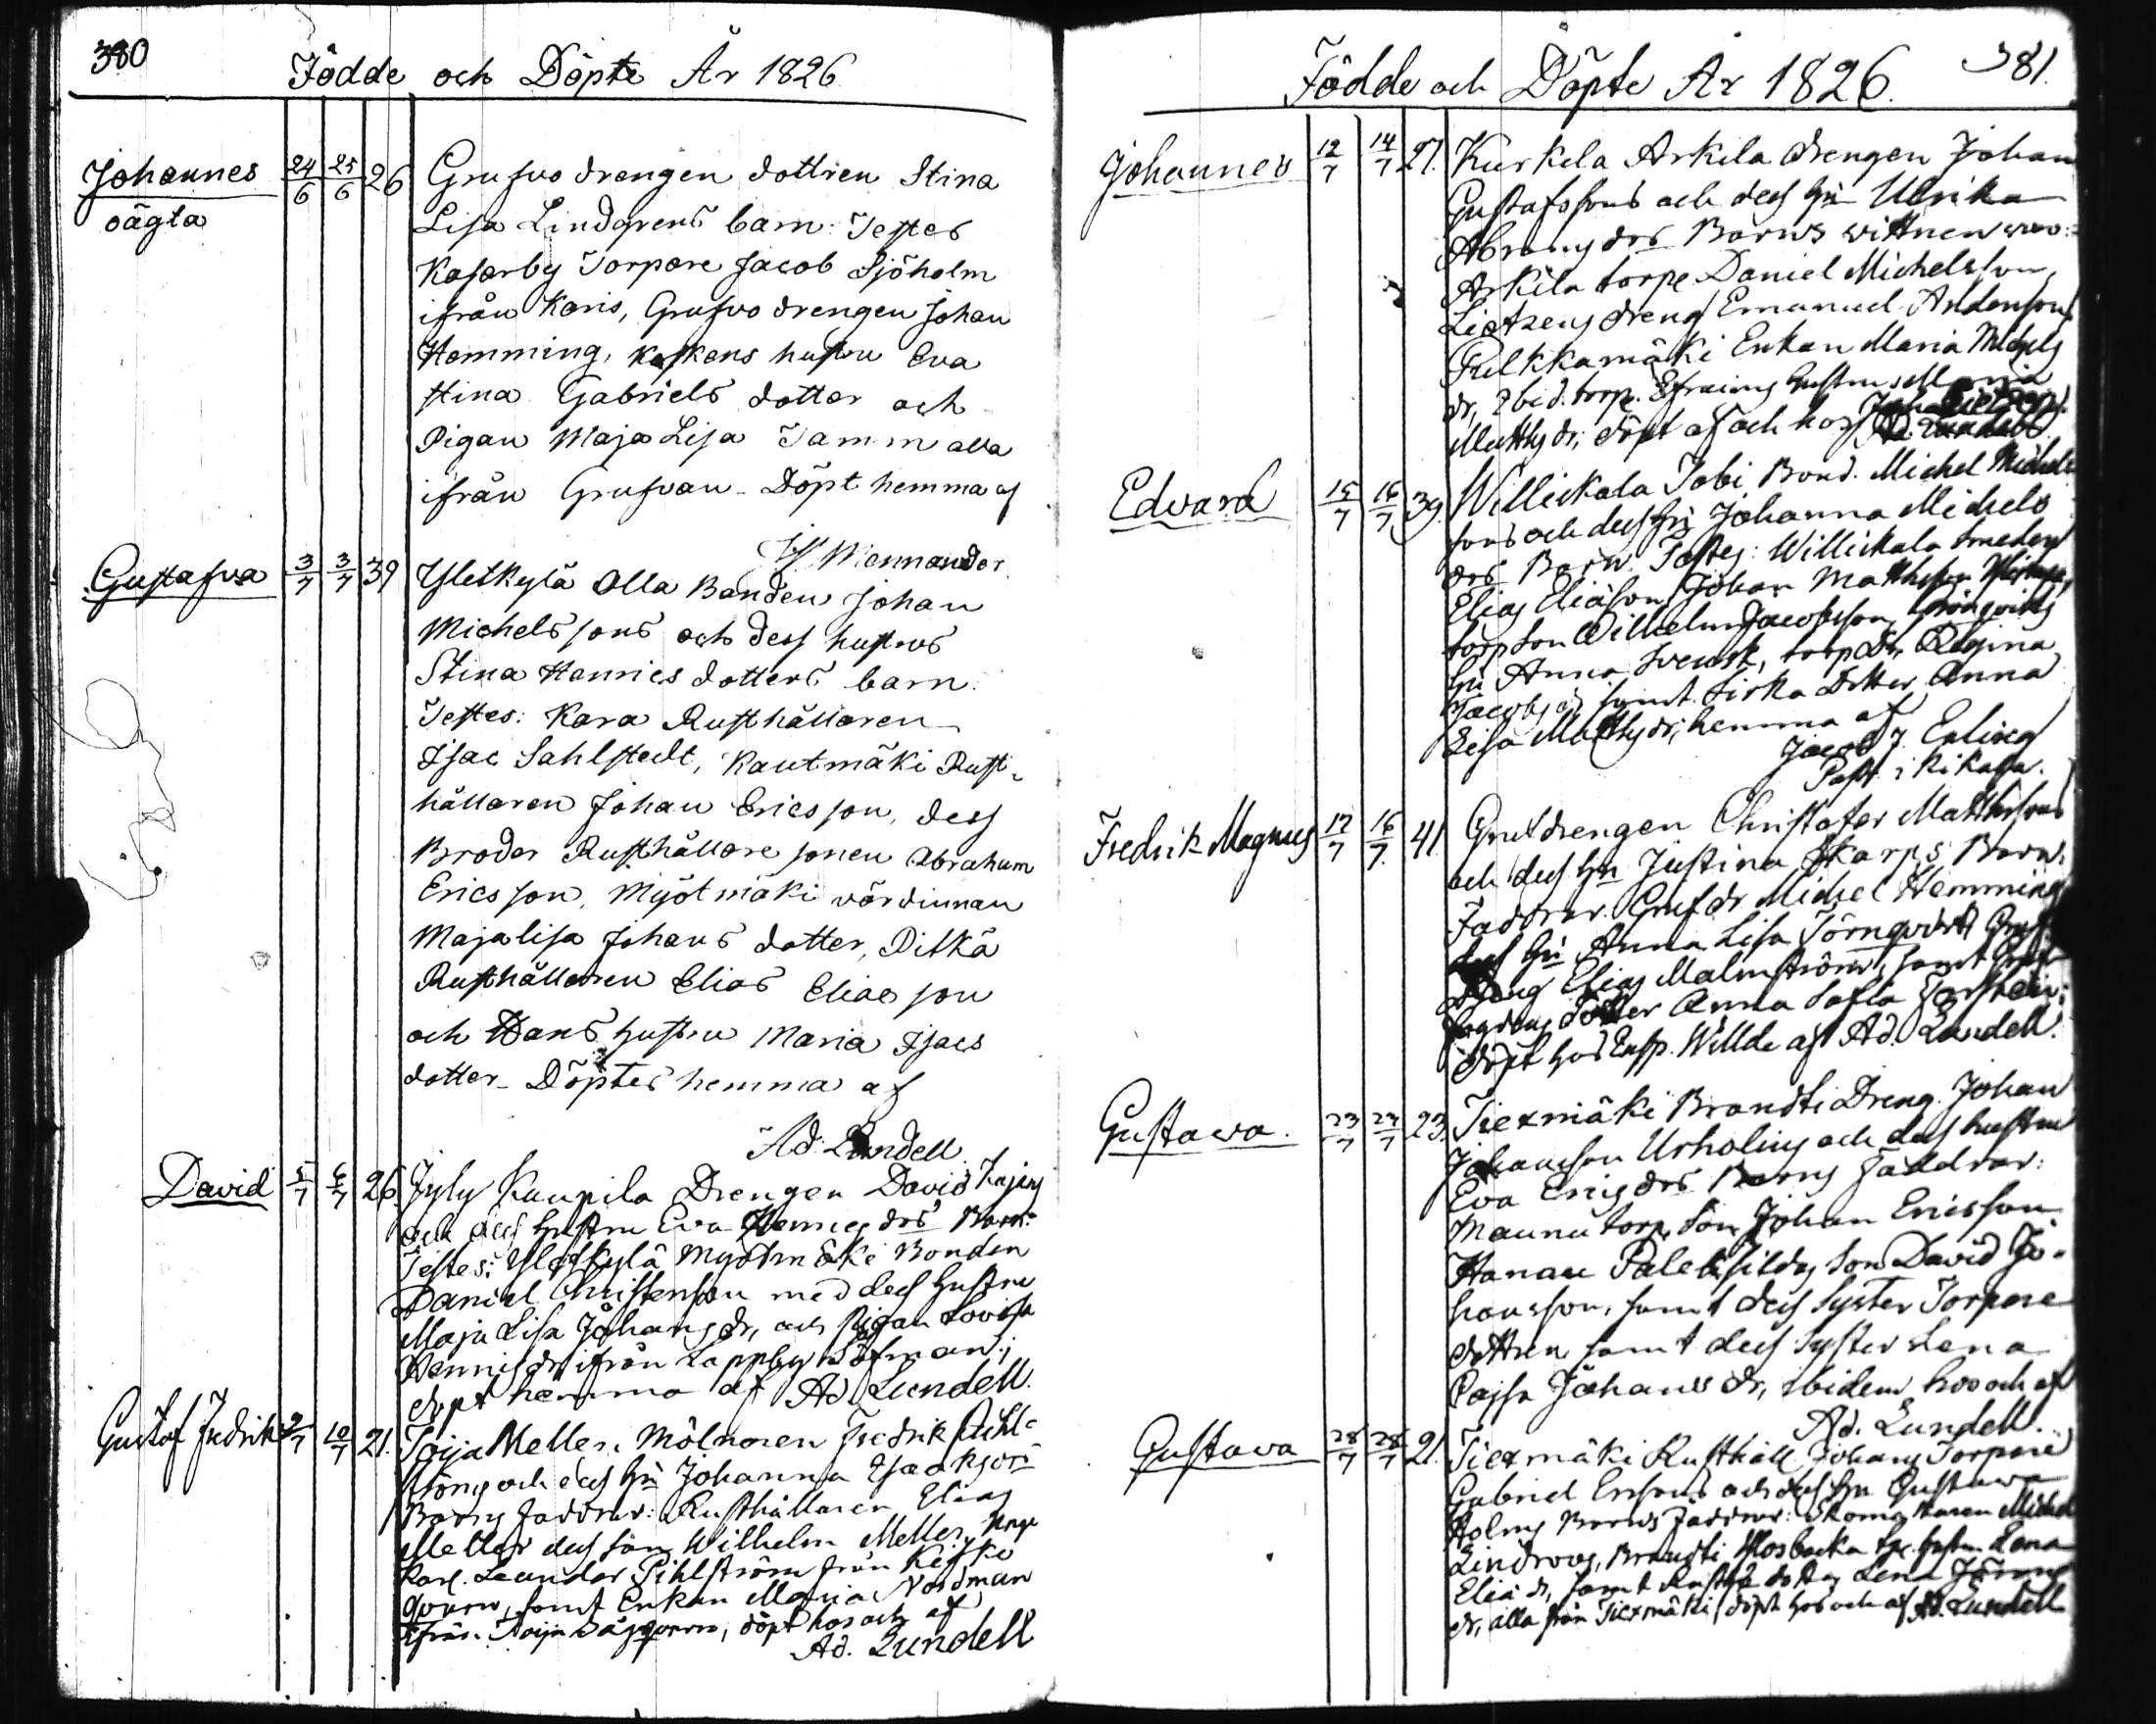 380
Födde och Döpte År 1826
Johannes 24/6 25/6 26 Grufvo drengen dottren Stina
oägta Lisa Lindgrens barn: Testes
Kasarby Torpare Jacob Sjöholm
ifrån Karis, Grufvo drengen Johan
Hemming, hustru Eva
Stina Gabriels dotter och
Pigan Maja Lisa Tamm alla
ifrån Grufvan - Döpt hemma af
Wennander
Gustafva 3/7 3/7 39 Yletkylä Olla Bonden Johan
Michels sons och dess hustrus
Stina Henrics dotters barn.
Testes: Kara Rusthållaren
Isac Sahlstedt, Kautmäki Rust-
hållaren Johan Ericsson, dess
Broder Rusthållare sonen Abraham
Ericsson, Myötmäki värdinnan
Majalisa Johans dotter, Pitkä
Rusthållaren Elias Eliasson
och Hans hustru Maria Isacs
dotter - Döptes hemma af
Ad. Lundell
David 5/7 6/7 26. Jyly Kaupila Drengen David
och dess hustru Eva Henricsdrs Barn.
Testes: Yletkylä Myötmäki Bonden
Daniel Christersson med dess hustru
Maja Lisa Johans dr, och Pigan Lovisa
Henricsdr ifrån Lappby
döpt hemma af Ad. Lundell.
Gustof Fredrik 10/7 21. Toija Meller. Mölnaren Fredrik Pihl-
ströms och dess hu Johanna
Barns faddrar: Rusthållaren Elias
Meller dess son Wilhelm Meller,
Karl Leander Pihlström från Kisko
qvarn, samt Enkan Maria Nordman
ifrån Toija Sågqvarn, döpt hos och af
Ad. Lundell
Födde och Döpte År 1826. 381.
Johannes 12/7 14/7 27. Kurkela Arkila drengen Johan
Gustafssons och dess hu Ulrika
Abrams drs Barns wittnen woro:
Arkila torpe Daniel Michelsson,
dreng Emanuel
Pulkkamäki Enkan Maria Michels
dr, Ibid. torp. Efraims hustru Maria
Matths dr, döpt af och hos
Edvard 15/7 16/7 39. Willikkala Tobi Bond. Michel Michels
sons och dess hu Johanna Michels
drs Barn. Testes: Willikkala Smeden
Elias Eliasson, Johan Mathsson
torp son Wilhelm Jacobsson,
hu Anna Svensk, torp dr Regina
Jacobs dr, samt Dotter Anna
Lisa Matths dr, hemma af
Jacob J. Erling
Past. i Kikala.
Fredrik Magnus 12/7 16/7 41. Grufdrengen Christofer Matthssons
och dess hu Justina Skarps Barn.
Faddrar. Grufdr Michel Hemming
dess hu Anna Lisa Törnqvist Gruf-
dreng Elias Malmström, samt Gruf
fogdens Dotter Anna Sofia
döpt hos Insp. Willde af Ad. Lundell.
Gustava. 23/7 24/7 23. Tiexmäki Brandti Dreng. Johan
Johansson Urholins och dess hustru
Eva Erics drs Barns faddrar:
Maunu torp. Son Johan Ericsson
Hanau son David Jo-
hansson, samt dess Syster Torpare
dottren samt dess Syster Lena
Cajsa Johans dr, ibidem hos och af
Ad. Lundell.
Gustava 28/7 28/7 21. Tiexmäki Rusthåll Johans Torpare
Gabriel och dess hu Gustava
Holms Barns Faddrar: Skomakaren Michel
Lindroos, Brandti hustru Lena
Elia dr, samt dotter Lena
dr, alla från Tiexmäki, döpt hos och af Ad. Lundell